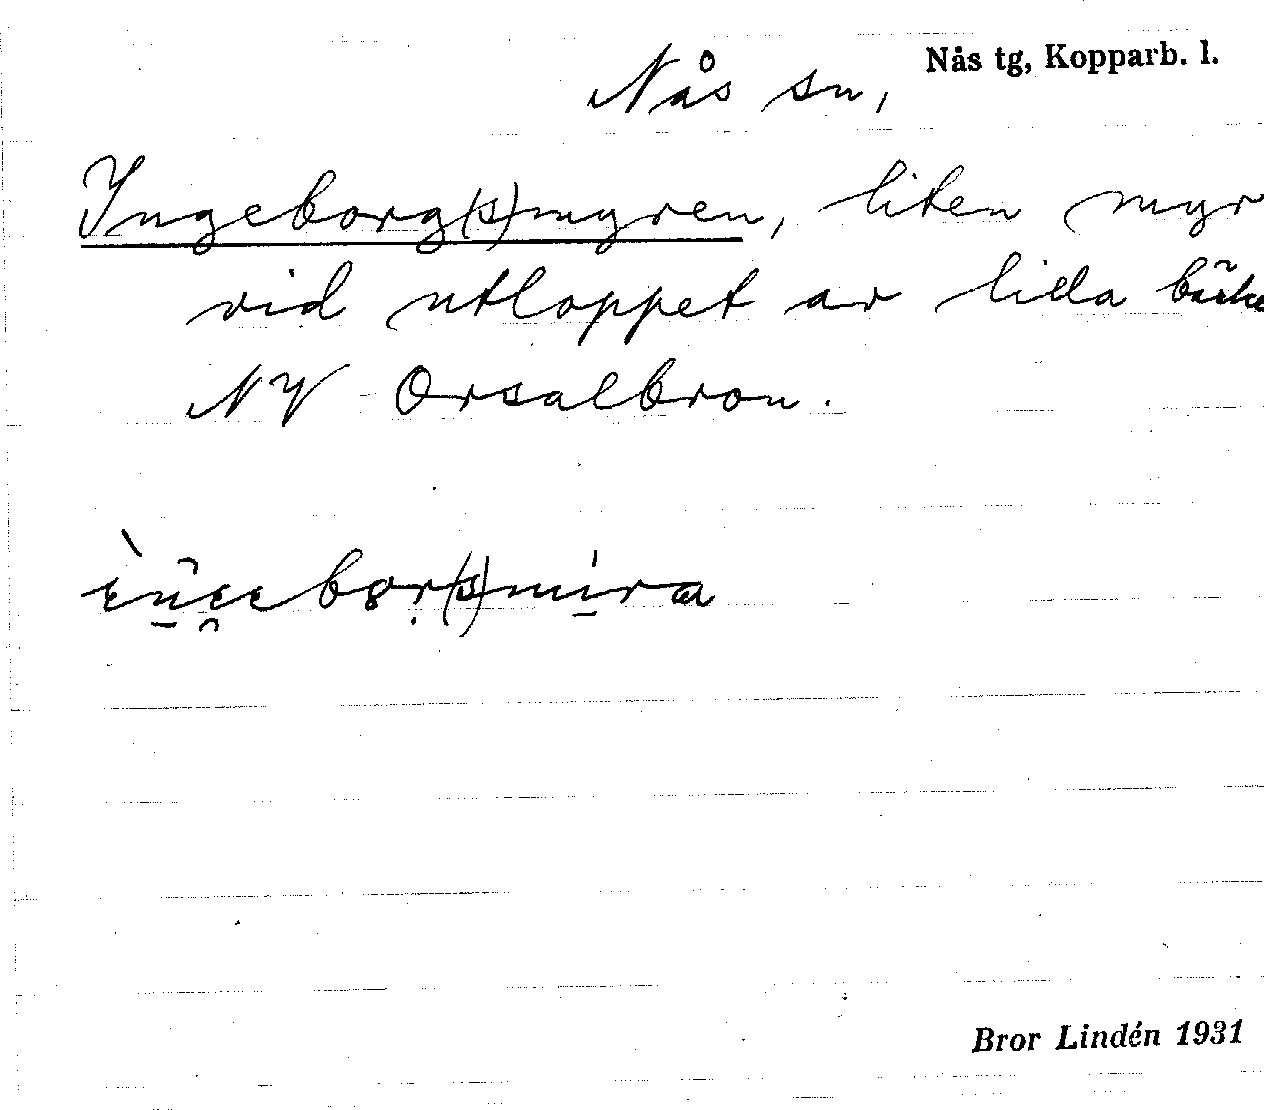 Nås tg, Kopparb. l.
Nås sn,
Ingeborg(s)myren, liten myr
vid utloppet av lilla
NV Orsalbron.
Bror Lindén 1931